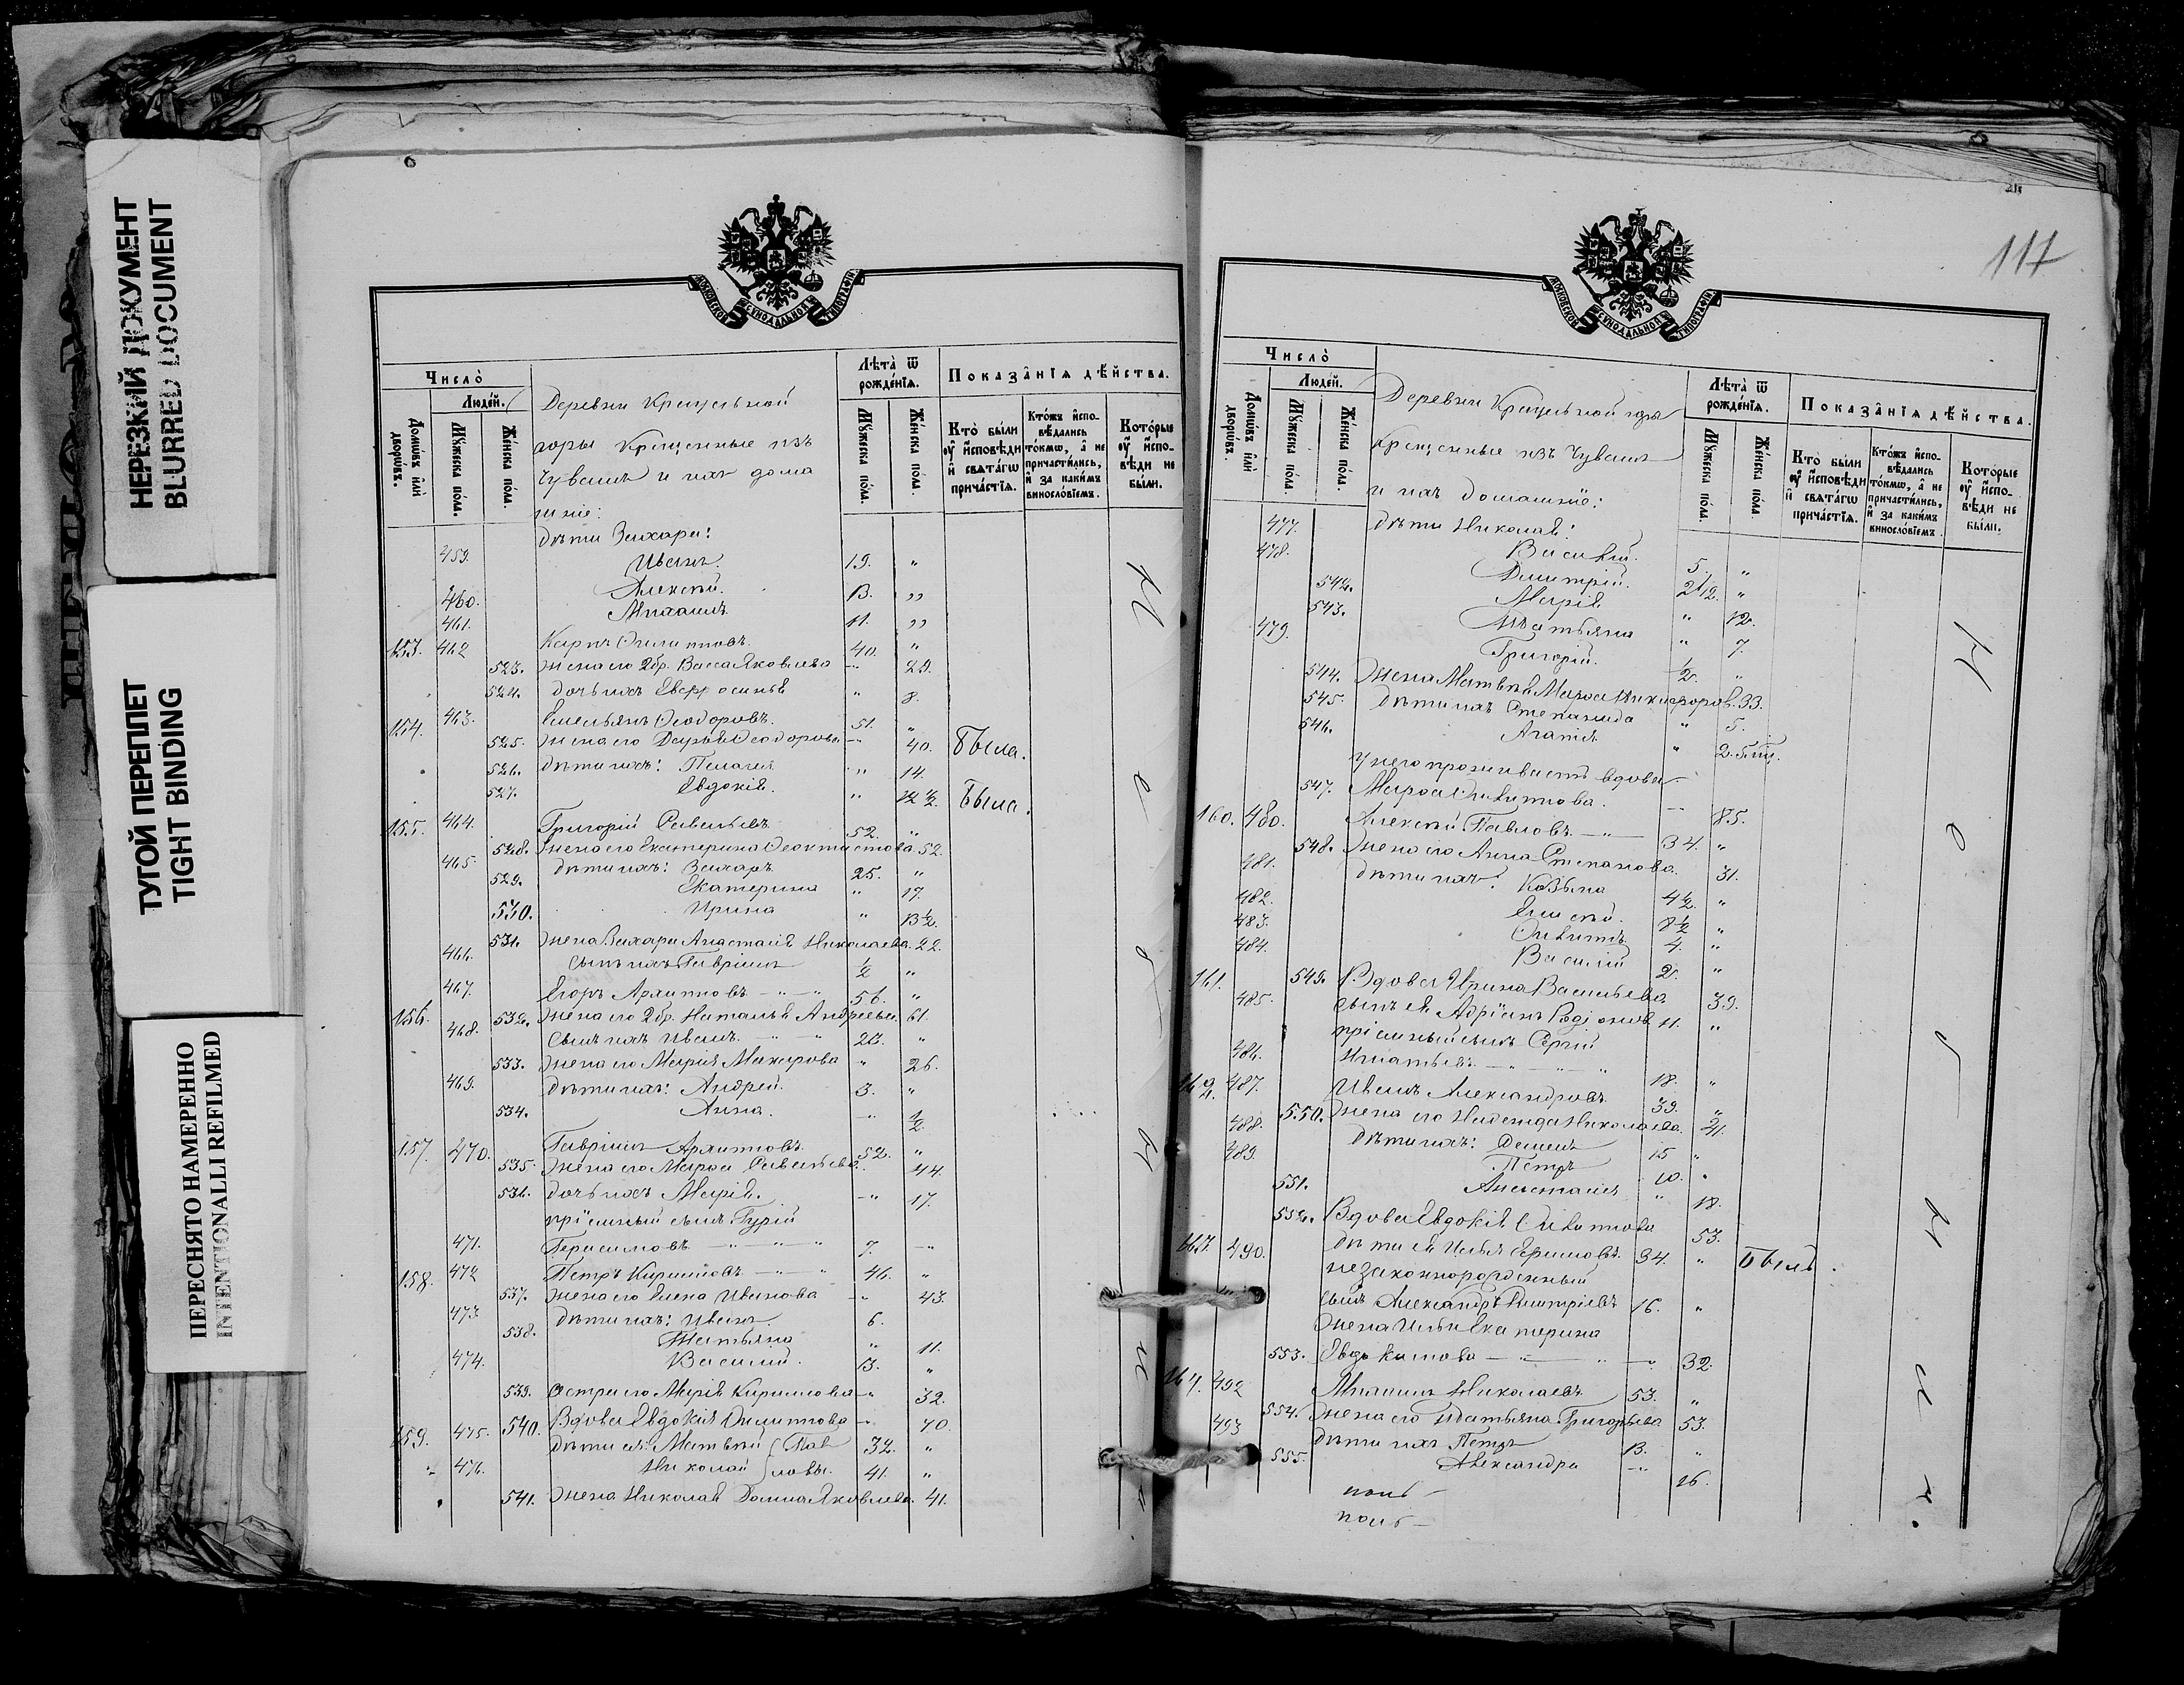 НЕРЕЗКИЙ ДОКУМЕНТ
BLURRED DOCUMENT
ТУГОЙ ПЕРЕПЛЕТ
TIGHT BINDING
ПЕРЕСНЯТО НАМЕРЕННО
INTENTIONALLI REFILMED
МОСКОВСКОЙ СѴНОДАЛЬНОЙ ТИПОГРАФІИ
Число̀
Людей.
Домѡвъ и҆лѝ дворѡвъ.
Мꙋжеска по́ла.
Же́нска по́ла.
Деревни
горы Крещенные изъ
Чувашъ и ихъ дома
шніе:
Лѣта̀ ѿ рожде́нїѧ.
Мꙋжеска по́ла.
Же́нска по́ла.
Показа̑нїѧ дѣ́йства.
Кто̀ бы́ли ᲂу҆ и҆сповѣди и҆ свѧта́гѡ прича́стїѧ.
Кто́жъ и҆спо- вѣ́дались то́кмѡ, а҆ не причасти́лись, и҆ за каки́мъ винословїемъ.
Кото́рые ᲂу҆ и҆спо- вѣди не бы́ли.
дѣти Захара:
459. Иванъ. 19. "
460. Алексѣй. 13. "
461. Михаилъ 11. "
153. 462 Карпъ Филипповъ. 40. "
523. Жена его 2бр. Васса Яковлева " 29.
524. дочь ихъ Евфросинья " 8.
154. 463. Емельянъ Ѳеодоровъ. 51. "
525. Жена его Дарья Ѳеодорова " 40. Была.
526. дѣти ихъ: Пелагея " 14.
527. Евдокія. " 12 ½ Была.
155. 464. Григорій Савельевъ 52. "
528. Жена его Екатерина Ѳеоктистова 52.
465. дѣти ихъ: Захаръ 25. "
529. Екатерина " 17.
530. Ирина " 13½.
531. Жена Захара Анастасія Николаева. 22.
466. сынъ ихъ Гавріилъ ½ "
156. 467. Егоръ Архиповъ " " 56. "
532. Жена его 2бр. Наталья Андреева. 61.
468. сынъ ихъ Иванъ. " " "
533. Жена его Марія Макарова " 26.
469. дѣти ихъ: Андрей. 3. "
534. Анна. " ½
157. 470. Гавріилъ Архиповъ. 52. "
535. Жена его Марѳа Савельева. 44.
536. дочь ихъ Марія. " 17.
пріемный сынъ Гурій
471. Герасимовъ " " " 7. "
158. 472 Петръ Кирилловъ " " 46. "
537. Жена его Елена Иванова " 43.
473 дѣти ихъ: Иванъ. 6.
538. Татьяна " 11.
474. Василій. 13. "
539. Сестра его Марія Кириллова " 32.
540. Вдова Евдокія Филиппова " 70.
159. 475. дѣти ея: Матвѣй { Пав 32. "
" 476. Николай { ловы. 41. "
541. Жена Николая Домна Яковлева. 41.
117
МОСКОВСКОЙ СѴНОДАЛЬНОЙ ТИПОГРАФІИ
Число̀
Людей.
Домѡвъ и҆лѝ дворѡвъ.
Мꙋжеска по́ла.
Же́нска по́ла.
Деревни
Крещенные изъ Чувашъ
и ихъ домашніе:
Лѣта̀ ѿ рожде́нїѧ.
Мꙋжеска по́ла.
Же́нска по́ла.
Показа̑нїѧ дѣ́йства.
Кто̀ бы́ли ᲂу҆ и҆сповѣди и҆ свѧта́гѡ прича́стїѧ.
Кто́жъ и҆спо- вѣ́дались то́кмѡ, а҆ не причасти́лись, и҆ за каки́мъ винословїемъ
Кото́рые ᲂу҆ и҆спо- вѣди не бы́ли.
дѣти Николая:
477. Василій. 5. "
478. Димитрій. 2½. "
542. Марія " 12.
543. Татьяна " 7.
479. Григорій. ½ "
544. Жена Матвѣя Марѳа Никифоров. 33.
545. дѣти ихъ Степанида " 5.
546. Агапія "
у него проживаетъ вдова
547. Марѳа " 85.
160. 480. Алексѣй Павловъ. " 34. "
548. Жена его Анна Степанова. 31.
481. дѣти ихъ: Козьма 4½. "
482. Елисѣй. 8½ "
483. 4. "
484. Василій 2. "
161. 549. Вдова Ирина Васильева 39.
485. сынъ ея Адріанъ Родіонов. 11. "
пріемный сынъ Сергій
486. Игнатьевъ " " " 18. "
162. 487. Иванъ Александровъ 39. "
550. Жена его Надежда Николаева. 41.
488. дѣти ихъ: 15 "
489. Петръ 10. "
551. Анастасія " 18.
552. Вдова Евдокія 53.
163. 490. дѣти ея Илья 34. " Былъ.
незаконнорожденный
сынъ Александръ Димитріевъ 16. "
Жена Ильи Екатерина
553. Евдокимова " " " 32.
164. 492 Михаилъ Николаевъ 53. "
554. Жена его Татьяна Григорьева 53.
493 дѣти ихъ Петръ 13. "
555. Александра " 16.